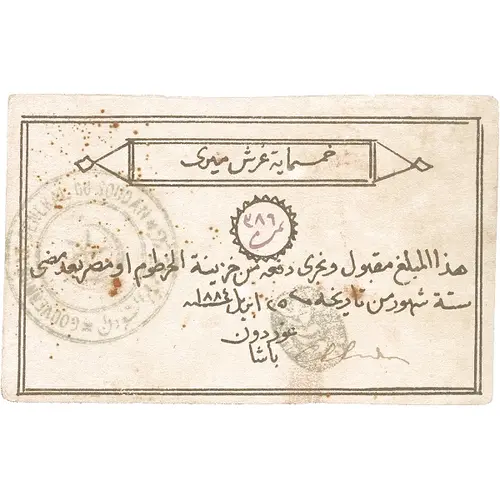 خمسماية غرش ميرى
٣٨٩
هذا المبلغ مقبول ويجرى دفعه من خزينة الخرطوم او مصر بعد مضى
ستة شهور من تاريخه ٢٥ ابريل ١٨٨٤ـنه
غوردون
باشا
GOUVERNEMENT GÉNÉRAL DU SOUDAN